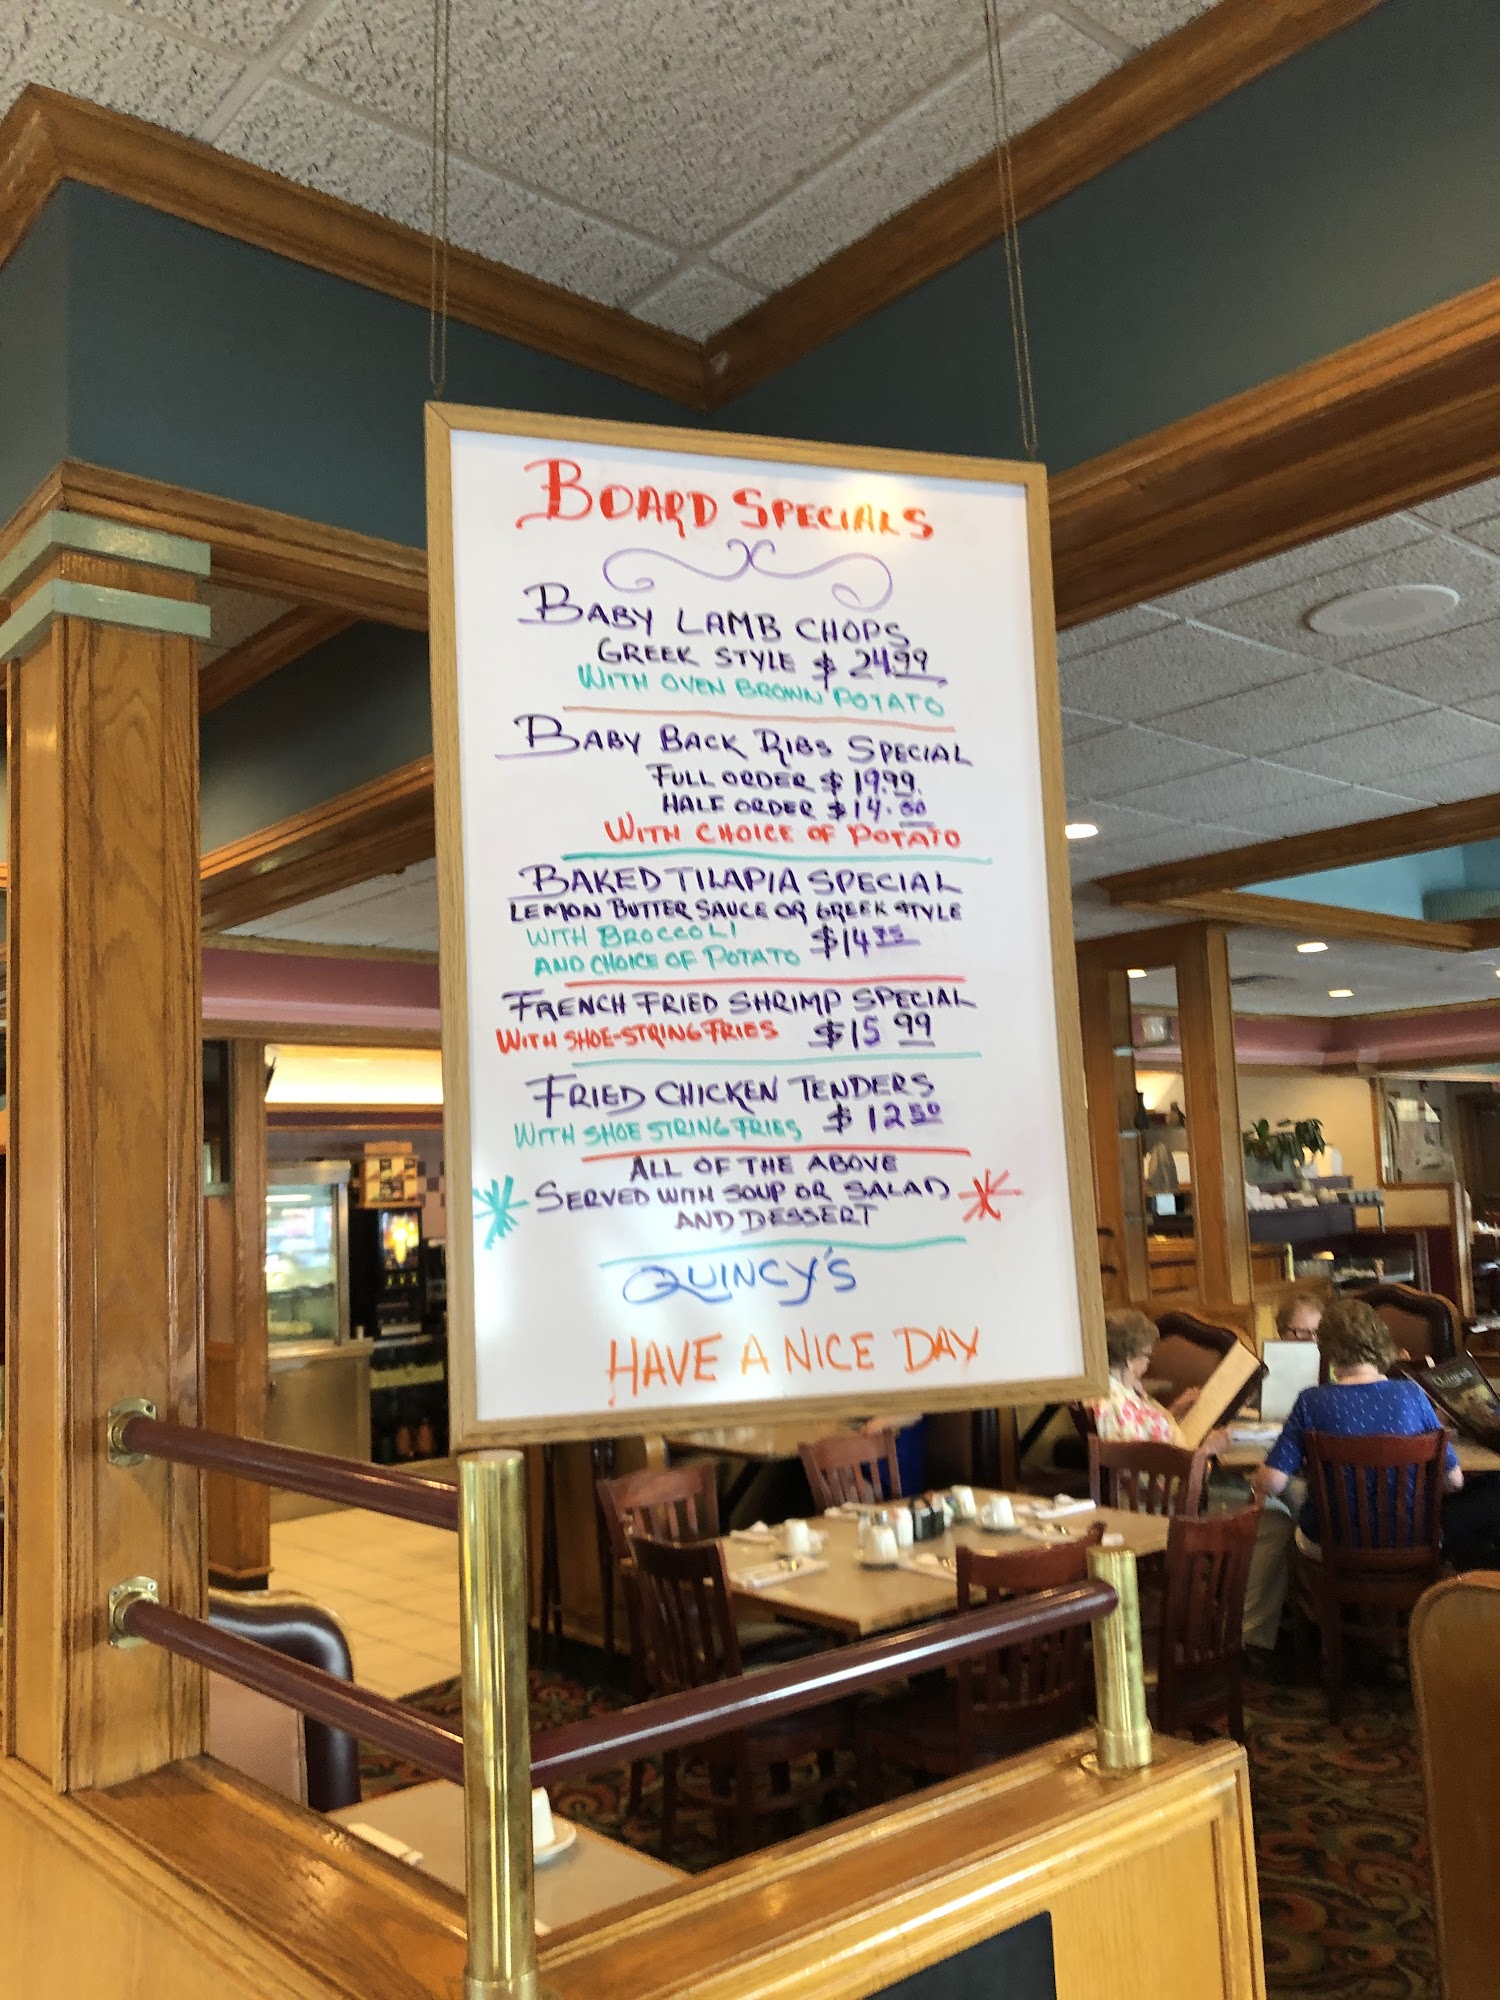 BOARD SPECIALS
BABY LAMB CHOPS
GREEK STYLE $ 24.99
WITH OVEN BROWN POTATO
BABY BACK RIBS SPECIAL
FULL ORDER $ 19.99
HALF ORDER $14.50
WITH CHOICE OF POTATO
BAKED TILAPIA SPECIAL
LEMON BUTTER SAUCE OR GREEK STYLE
WITH BROCCOLI
AND CHOICE OF POTATO $14 95
FRENCH FRIED SHRIMP SPECIAL
WITH SHOE-STRING FRIES $15 99
FRIED CHICKEN TENDERS
WITH SHOE STRING FRIES $ 12 50
ALL OF THE ABOVE
SERVED WITH SOUP OR SALAD
AND DESSERT
QUINCY'S
HAVE A NICE DAY